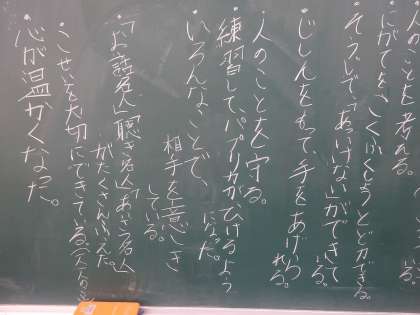 人のことを考える。
にがてを、こくふくしようとどりょくできる。
・そうじで、「あいけない」ができている。
・じしんをもって、手をあげられる。
人のことを守る。
・練習して、パプリカがひけるようになった。
・いろんなことで、相手を意しきしている。
・「お話名人」「聴き名人」「あいさつ名人」がたくさんふえた。
・こせいを大切にできている。(一人一人の)
・心が温かくなった。